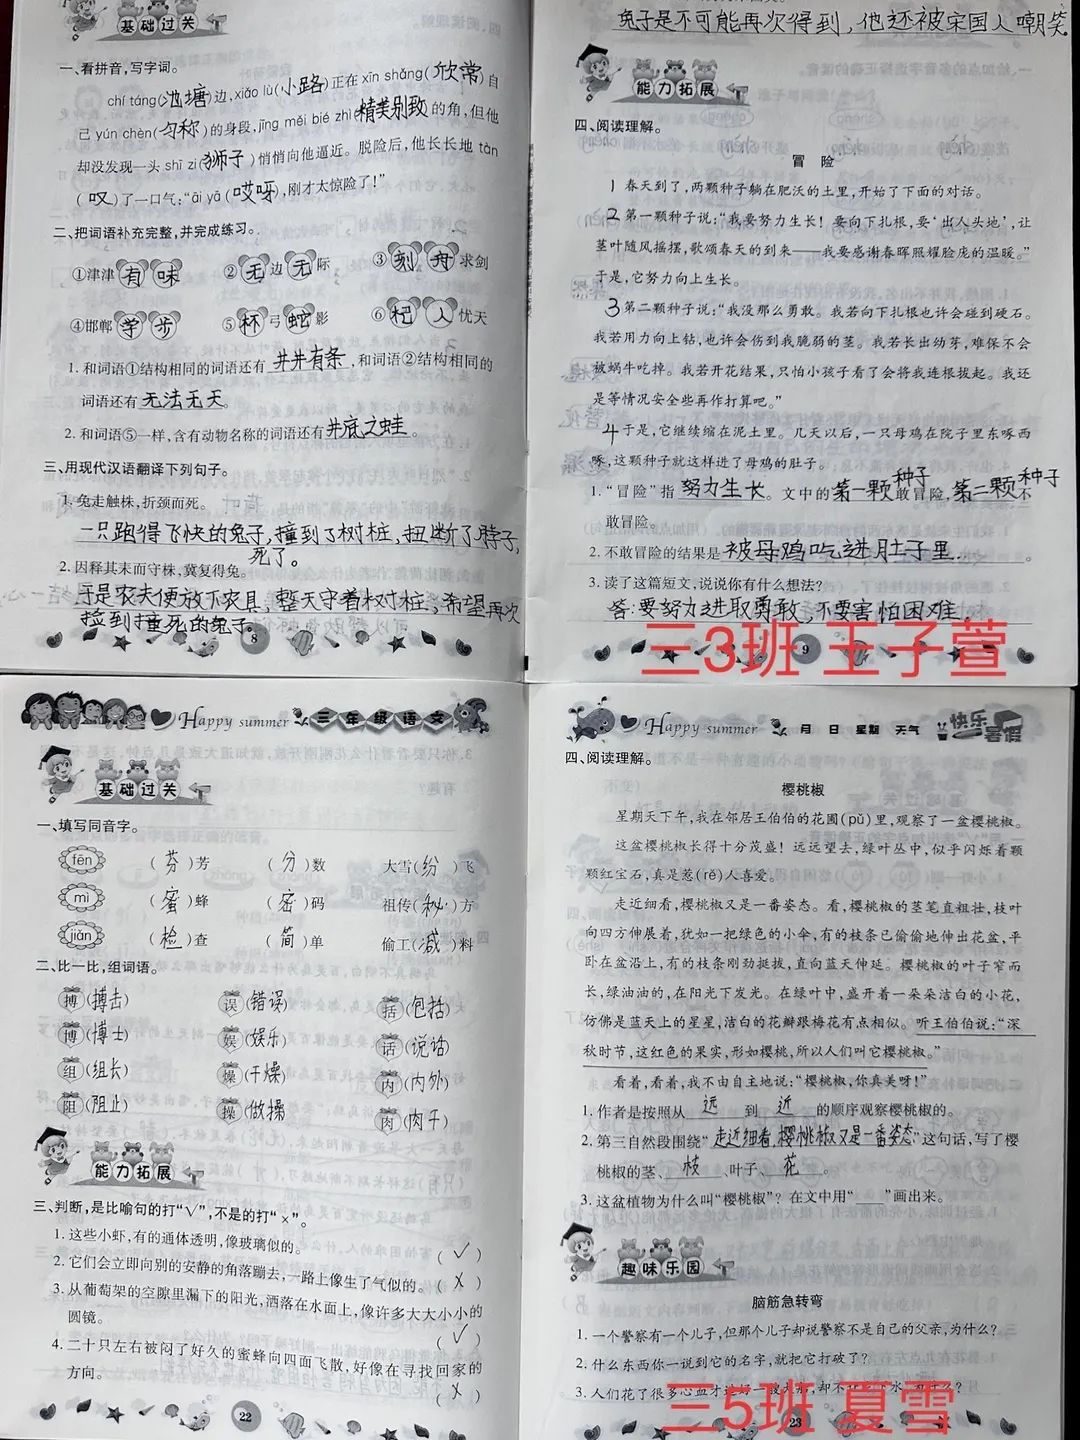 基础过关
一、看拼音,写字词。
chí táng(池塘)边,xiǎo lù(小路)正在xīn shǎng(欣常)自
己yún chèn(匀称)的身段,jīng měi bié zhì(精美别致)的角,但他
却没发现一头shī zi(狮子)悄悄向他逼近。脱险后,他长长地tàn
(叹)了一口气:“āi yā(哎呀),刚才太惊险了!”
二、把词语补充完整,并完成练习。
①津津有味 ②无边无际 ③刻舟求剑
④邯郸学步 ⑤杯弓蛇影 ⑥杞人忧天
1. 和词语①结构相同的词语还有井井有条,和词语②结构相同的
词语还有无法无天。
2. 和词语⑤一样,含有动物名称的词语还有井底之蛙。
三、用现代汉语翻译下列句子。
1. 兔走触株,折颈而死。
一只跑得飞快的兔子,撞到了树桩,扭断了脖子,
死了。
2. 因释其耒而守株,冀复得兔。
于是农夫便放下农具,整天守着树桩,希望再次
捡到撞死的兔子。
8
兔子是不可能再次得到,他还被宋国人嘲笑
能力拓展
四、阅读理解。
冒 险
1 春天到了,两颗种子躺在肥沃的土里,开始了下面的对话。
2 第一颗种子说:“我要努力生长!要向下扎根,要‘出人头地’,让
茎叶随风摇摆,歌颂春天的到来——我要感谢春晖照耀脸庞的温暖。”
于是,它努力向上生长。
3 第二颗种子说:“我没那么勇敢。我若向下扎根也许会碰到硬石。
我若用力向上钻,也许会伤到我脆弱的茎。我若长出幼芽,难保不会
被蜗牛吃掉。我若开花结果,只怕小孩子看了会将我连根拔起。我还
是等情况安全些再作打算吧。”
4 于是,它继续缩在泥土里。几天以后,一只母鸡在院子里东啄西
啄,这颗种子就这样进了母鸡的肚子。
1. “冒险”指努力生长。文中的第一颗种子敢冒险,第二颗种子不
敢冒险。
2. 不敢冒险的结果是被母鸡吃进肚子里。
3. 读了这篇短文,说说你有什么想法?
答:要努力进取勇敢,不要害怕困难
三3班 王子萱
9
Happy summer 三年级语文
基础过关
一、填写同音字。
fēn (芬)芳 (分)数 大雪(纷)飞
mì (蜜)蜂 (密)码 祖传(秘)方
jiǎn (检)查 (简)单 偷工(减)料
二、比一比,组词语。
搏(搏击) 误(错误) 括(包括)
博(博士) 娱(娱乐) 话(说话)
组(组长) 燥(干燥) 内(内外)
阻(阻止) 操(做操) 肉(肉干)
能力拓展
三、判断,是比喻句的打“√”,不是的打“×”。
1. 这些小虾,有的通体透明,像玻璃似的。 (√)
2. 它们会立即向别的安静的角落蹦去,一路上像生了气似的。 (×)
3. 从葡萄架的空隙里漏下的阳光,洒落在水面上,像许多大大小小的
圆镜。 (√)
4. 二十只左右被闷了好久的蜜蜂向四面飞散,好像在寻找回家的
方向。 (×)
22
Happy summer 月 日 星期 天气 快乐暑假
四、阅读理解。
樱桃椒
星期天下午,我在邻居王伯伯的花圃(pǔ)里,观察了一盆樱桃椒。
这盆樱桃椒长得十分茂盛!远远望去,绿叶丛中,似乎闪烁着颗
颗红宝石,真是惹(rě)人喜爱。
走近细看,樱桃椒又是一番姿态。看,樱桃椒的茎笔直粗壮,枝叶
向四方伸展着,犹如一把绿色的小伞,有的枝条已偷偷地伸出花盆,平
卧在盆沿上,有的枝条刚劲挺拔,直向蓝天伸延。樱桃椒的叶子窄而
长,绿油油的,在阳光下发光。在绿叶中,盛开着一朵朵洁白的小花,
仿佛是蓝天上的星星,洁白的花瓣跟梅花有点相似。听王伯伯说:“深
秋时节,这红色的果实,形如樱桃,所以人们叫它樱桃椒。”
看着,看着,我不由自主地说:“樱桃椒,你真美呀!”
1. 作者是按照从 远 到 近 的顺序观察樱桃椒的。
2. 第三自然段围绕“走近细看,樱桃椒又是一番姿态”这句话,写了樱
桃椒的茎、枝、叶子、花。
3. 这盆植物为什么叫“樱桃椒”?在文中用“ ”画出来。
趣味乐园
脑筋急转弯
1. 一个警察有一个儿子,但那个儿子却说警察不是自己的父亲,为什么?
2. 什么东西你一说到它的名字,就把它打破了?
3. 人们花了很多心血才
三5班 夏雪
23